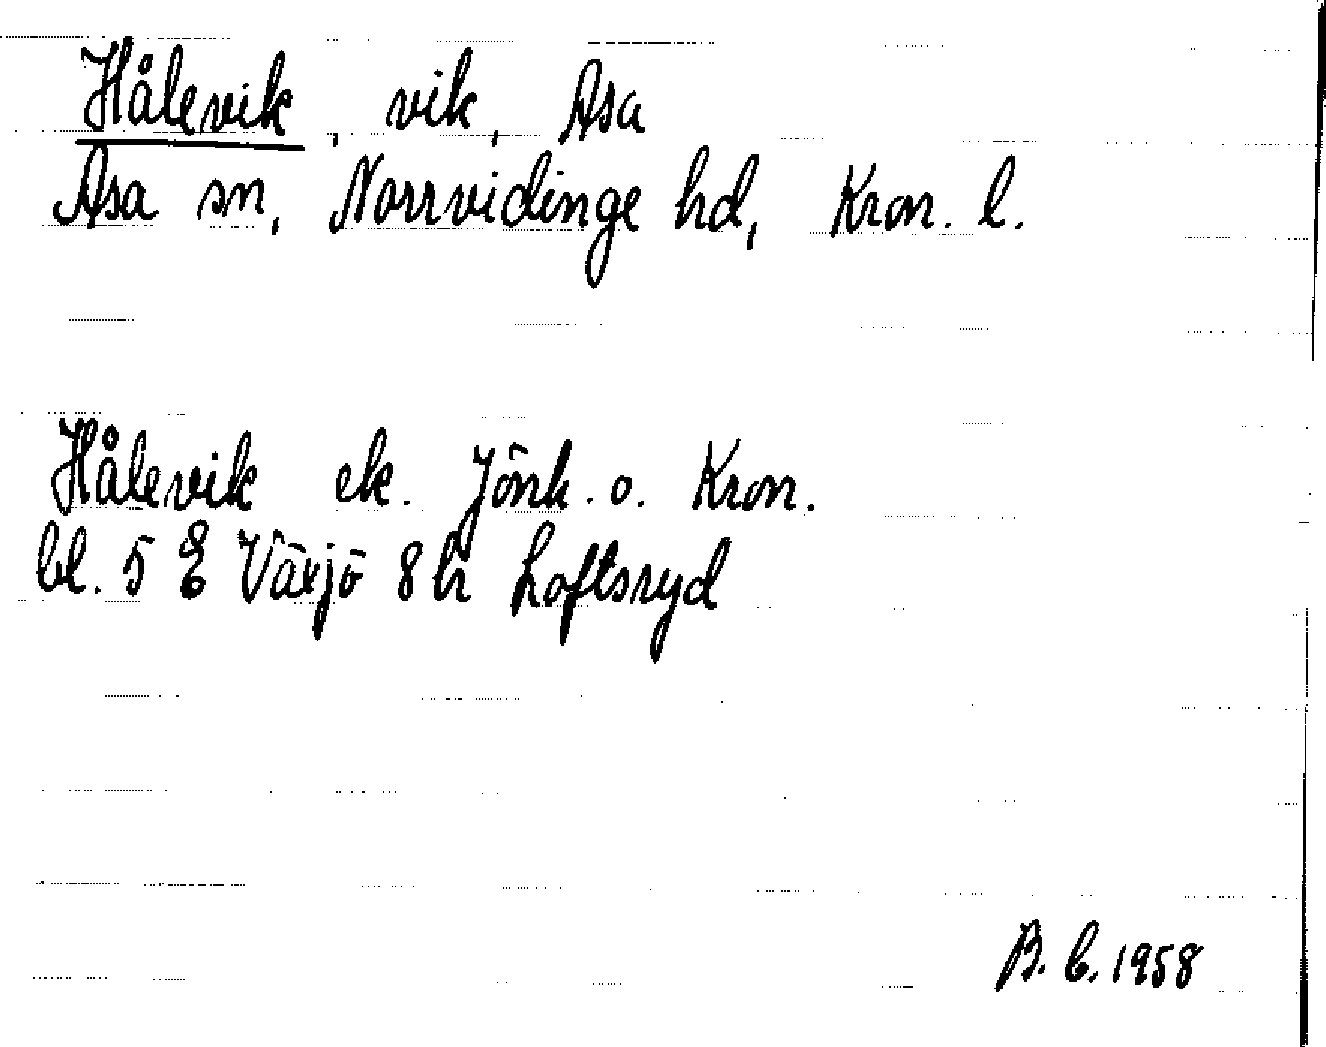 Hålevik, vik, Asa
Asa sn, Norrvidinge hd, Kron. l.
Hålevik ek. Jönk. o. Kron.
bl. 5 E Växjö 8 h Loftsryd
B. C. 1958